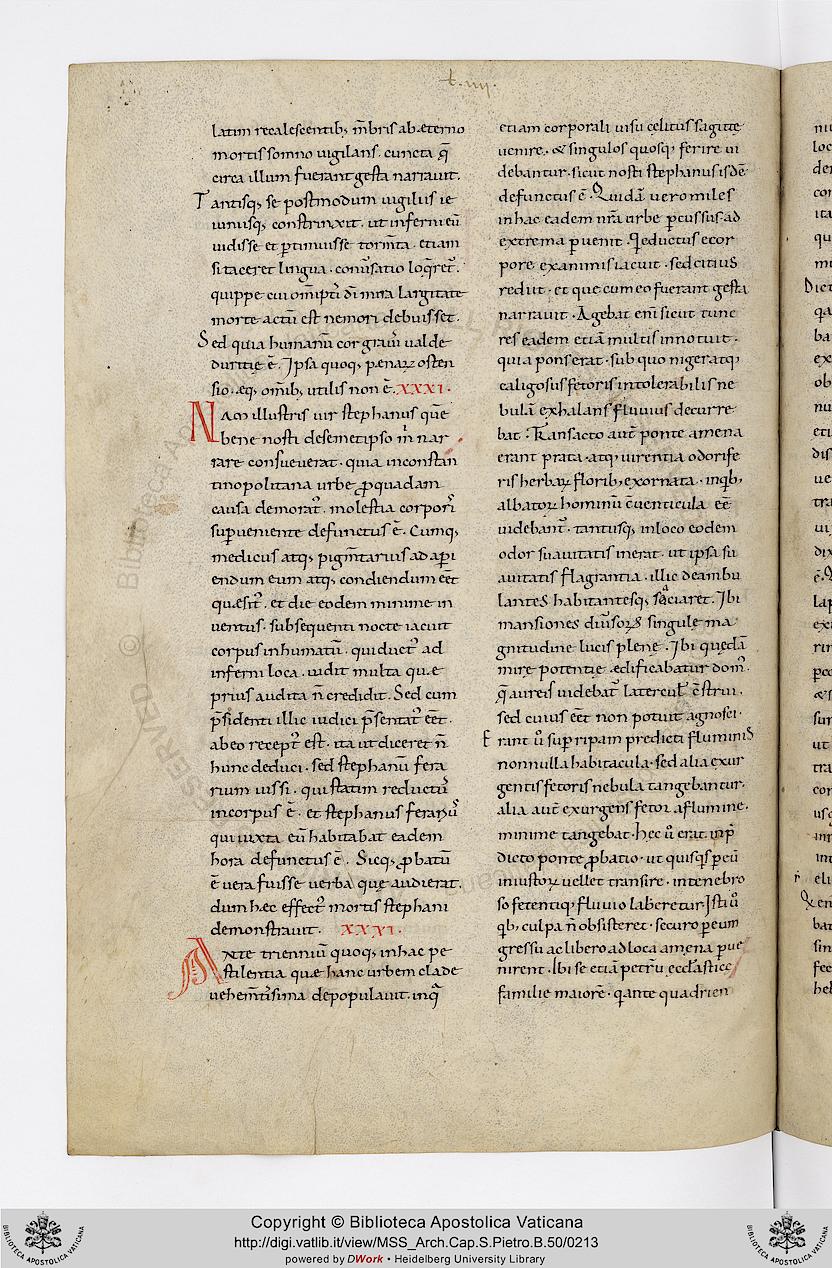 t. iiij.
latim recalescentib; m̄bris ab æterno
mortis somno uigilans. cuncta q̄
circa illum fuerant gesta narrauit.
Tantisq; se postmodum uigiliis ie
iuniisq; constrinxit. ut inferni eū
uidisse et ꝑtimuisse torm̄ta. etiam
si taceret lingua. conūsatio loq̄ret᷑.
quippe cui om̄ipt̄i dī mira largitate
morte actū est ne mori debuisset.
Sed quia humanū cor grauit᷑ ualde
duritie ē. Ipsa quoq; pęnaꝝ osten
sio. æq; om̄ib; utilis non ē. XXXI.
Nam illustris uir stephanus quē
bene nosti de semetipso m̄ nar
rare consueuerat. quia in constan
tinopolitana urbe ꝓ quadam
causa demorat᷑. molestia corpori᷑
suꝑueniente defunctus ē. Cumq;
medicus atq; pigm̄tarius ad aꝑi
endum eum atq; condiendum eēt
quæsit᷑. et die eodem minime in
uentus. subsequenti nocte iacuit
corpus inhumatū. qui duct᷑ ad
inferni loca. uidit multa quæ
prius audita n̄ credidit. Sed cum
p̄sidenti illic iudici p̄sentat᷑ eēt.
ab eo recept᷑ est. ita ut diceret n̄
hunc deduci. sed stephanū fera
rium iussi. qui statim reductus᷑
in corpus ē. et stephanus ferariᷤ
qui iuxta eū habitabat eadem
hora defunctus ē. Sicq; ꝓbatū
ē uera fuisse uerba que audierat.
dum hęc effect᷑ mortis stephani
demonstrauit. XXXI.
Ante trienniū quoq; in hac pe
stilentia quæ hanc urbem clade
uehem̄tissima depopulauit. in q̄
etiam corporali uisu cęlitus sagittę
uenire. & singulos quosq; ferire ui
debantur. sicut nosti stephanus isdē
defunctus ē. Quidā uero miles
in hac eadem nr̄a urbe ꝑcussus ad
extrema ꝑuenit. Qi eductus e cor
pore exanimis iacuit. sed citius
rediit. et que cum eo fuerant gesta
narrauit. Agebat eni᷑ sicut tunc
res eadem etiā multis innotuit.
quia pons erat. sub quo niger atq;
caligosus fetoris intolerabilis ne
bulā exhalans fluuius decurre
bat. Transacto aut̄ ponte amena
erant prata. atq; uirentia odorife
ris herbaꝝ florib; exornata. in qb;
albatoꝝ hominū c̄uenticula eē
uidebant᷑. tantusq; in loco eodem
odor suauitatis inerat. ut ipsa su
auitatis flagrantia. illic deambu
lantes habitantesq; saciaret. Ibi
mansiones diūsoꝝ singulę ma
gnitudine lucis plenę. Ibi quędā
mirę potentię ædificabatur dom᷑.
q̄ aureis uidebat᷑ laterculis c̄strui.
sed cuius eēt non potuit agnosci.
Erant ū suꝑ ripam predicti fluminis
nonnulla habitacula. sed alia exur
gentis fetoris nebula tangebantur.
alia aut̄ exurgens fetor a flumine.
minime tangebat. Hec ū erat in p̄
dicto ponte ꝓbatio. ut quisqs ꝑ eū
iniustoꝝ uellet transire. in tenebro
so fetentiq; fluuio laberetur. Isti ū
qb; culpa n̄ obsisteret. securo ꝑ eum
gressu ac libero ad loca amena ꝑue
nirent. Ibi se etiā petrū ecclasticę
familię maiorē. q̄ ante quadrien
Copyright © Biblioteca Apostolica Vaticana
http://digi.vatlib.it/view/MSS_Arch.Cap.S.Pietro.B.50/0213
powered by DWork • Heidelberg University Library